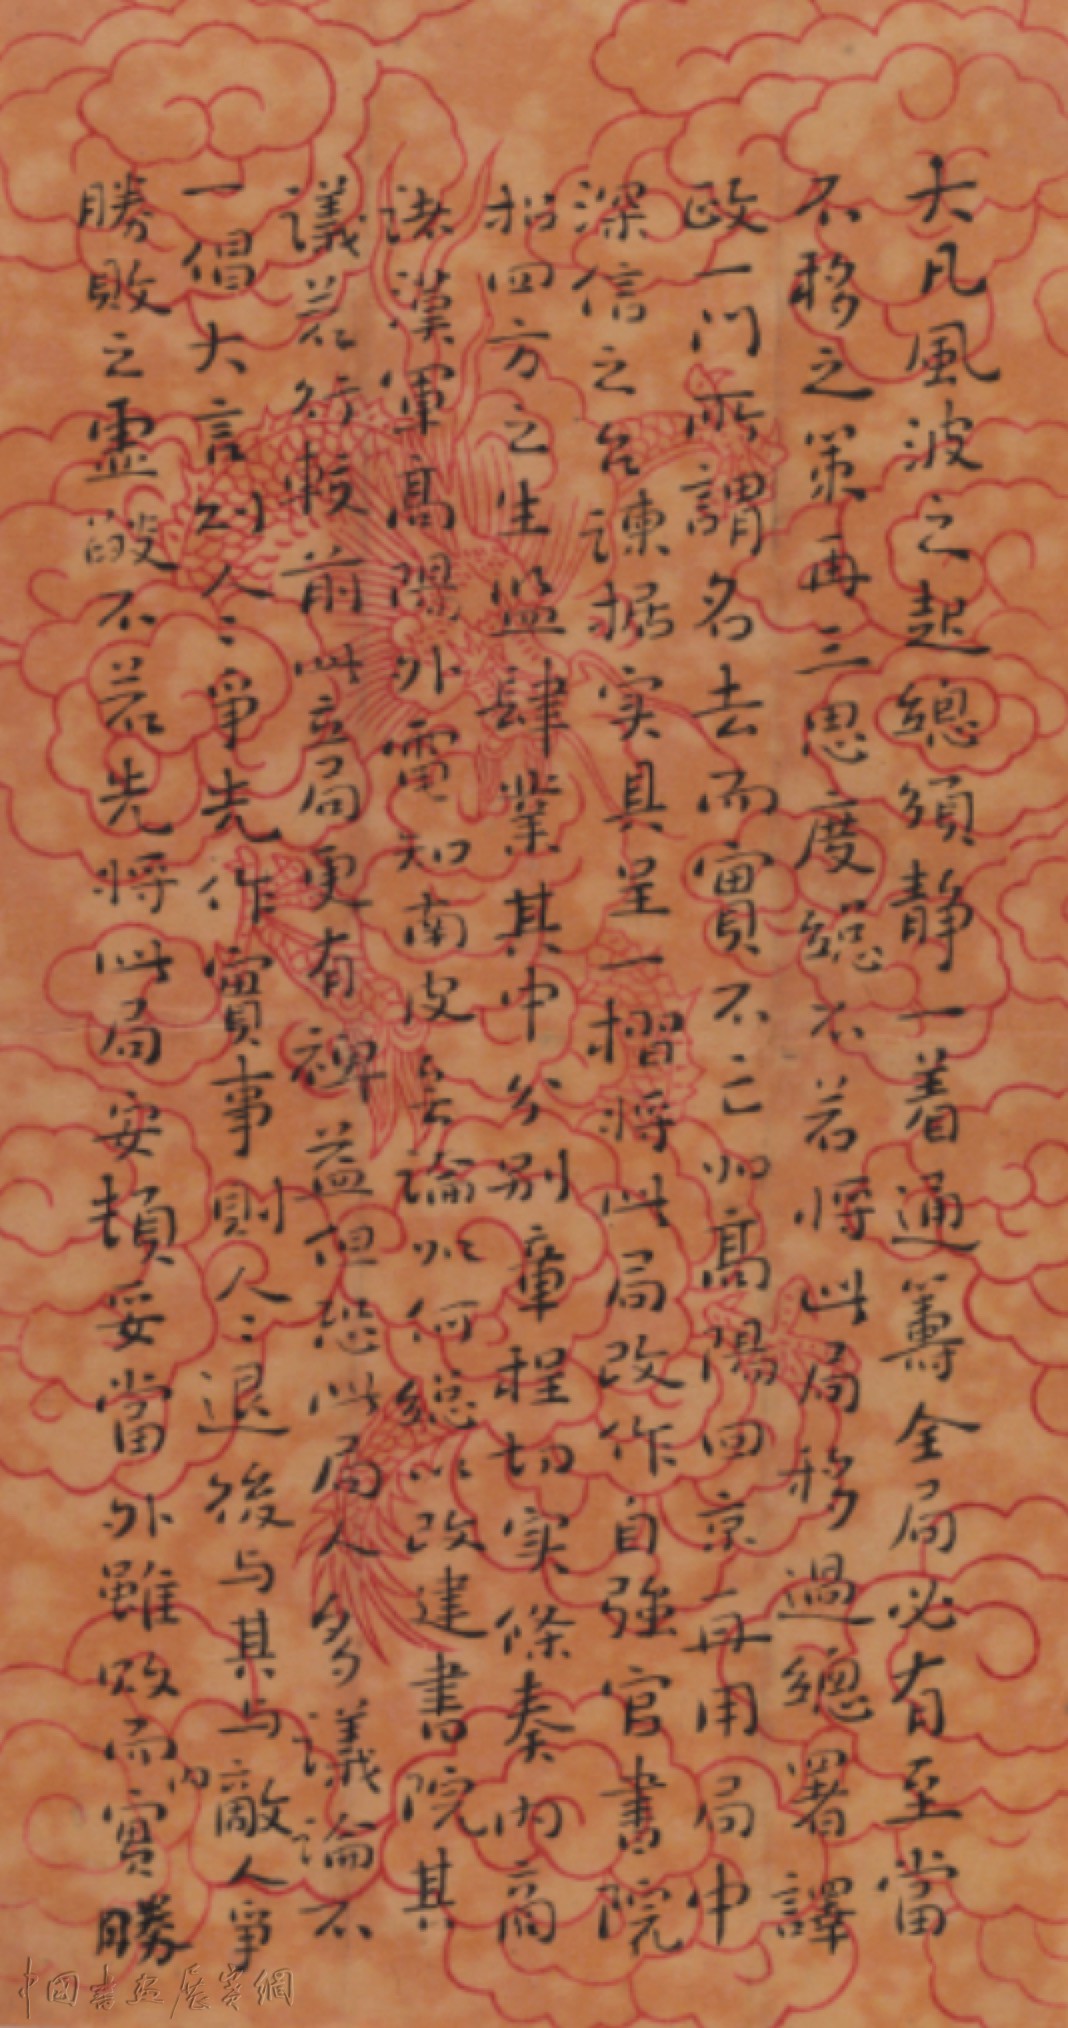 大凡風波之起總須靜一着通籌全局必有至當
不移之策再三思度總不若將此局移過總署譯
政一門所謂名去而實不亡如高陽回京再用局中
深信之台諫据实具呈一摺將此局改作自強官書院
招四方之生監肆業其中分別章程切实條奏內商
諸漢軍高陽外電知南皮無論如何總以改建書院其
議若行較前此立局更有裨益但恐此局人多議論不
一倡大言則人〻爭先作實事則人〻退後与其与敵人爭
內
勝敗之虛 不若先將此局安頓妥當外雖敗而實勝
中國書畫展賽網